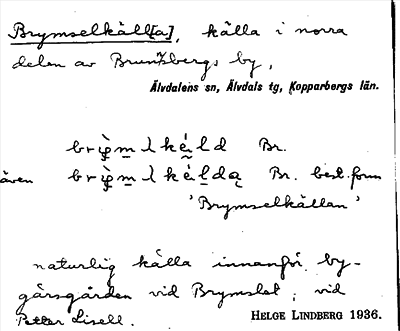 Brymselkäll[a], källa i norra
delen av Brunnsbergs by,
Älvdalens sn, Älvdals tg, Kopparbergs län.
Br.
även Br. best. form
'Brymselkällan'
naturlig källa innanför by-
gårsgården vid Brymslet, vid
Petter Lisell.
HELGE LINDBERG 1936.